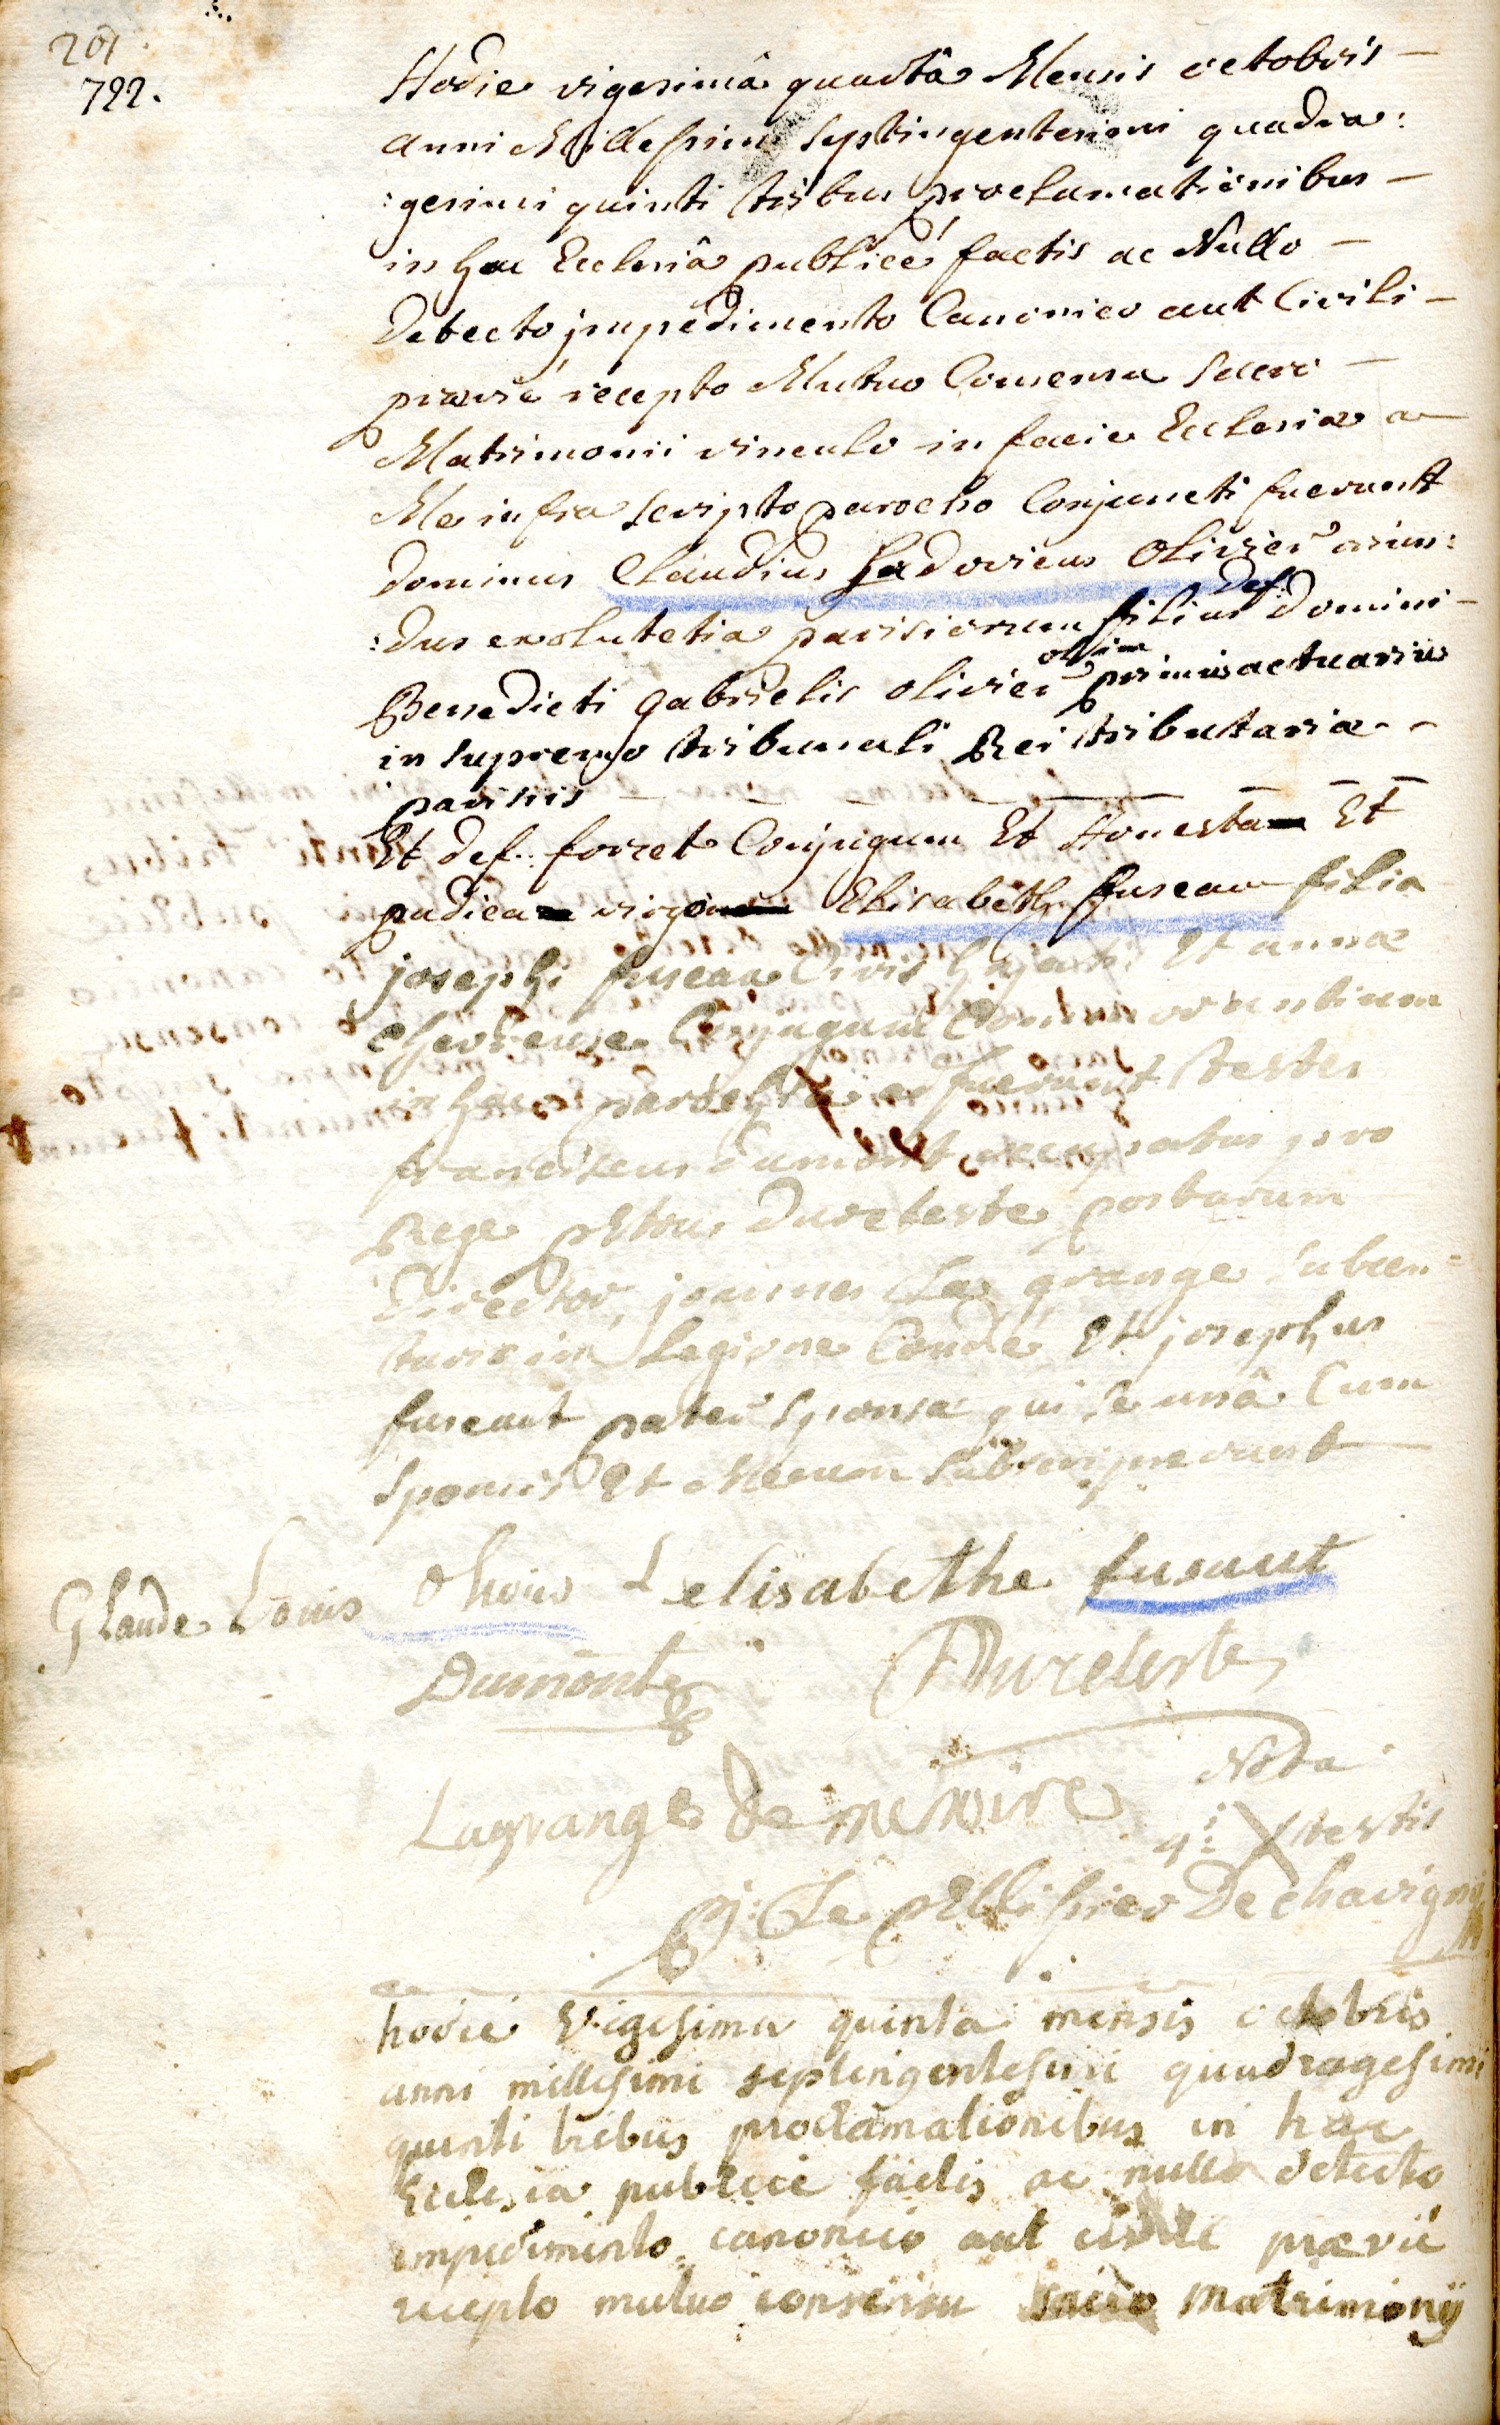 201.
722.
Hodie vigesimâ quartâ Mensis octobris -
Anni Millesimi septingentesimi quadra:
:gesimi quinti tribus proclamationibus -
in hac Ecclesiâ publicè factis ac Nullo -
Detecto jmpedimento Canonico aut Civili -
prævié recepto Mutuo Consensu Sacro -
Matrimonii vinculo in facie Ecclesiæ a
Me infra scripto parocho Conjuncti fuerunt
dominus Claudius Ludovicus Olivier oriun:
:dus ex lutetia parisiorum filius Def. Domini -
Benedicti gabrielis olivier olim primus actuarius
in supremo tribunali Rei tributariæ -
parisiis
Et def. forret Conjugum Et Honesta Et
pudica virgo Elisabeth fuseau filia
josephi fuseau Civis hujatis Et annæ
Chevreuse Conjugum Commorantium
in hac parochia fuerunt testes
franciscus dumont occupatus pro
Rege petrus Dureteste postarum
Director, joannes La grange subcen-
turio in Legione Condé Et josephus
fuseaut pater sponsæ qui se unâ Cum
sponsis Et Mecum subscripserunt
Glaude Louis Olivier L elisabethe fusaut
Dumont Dureteste
Lagrange De
Nota
4i X testis
pj. Le pellissier De chavigny
hodie Vigesima quinta mensis octobris
anni millesimi septingentesimi quadragesimi
quinti tribus proclamationibus in hac
Ecclesia publice factis ac nullo detecto
impedimento canonico aut civili prævie
recepto mutuo consensu sacro Matrimonij